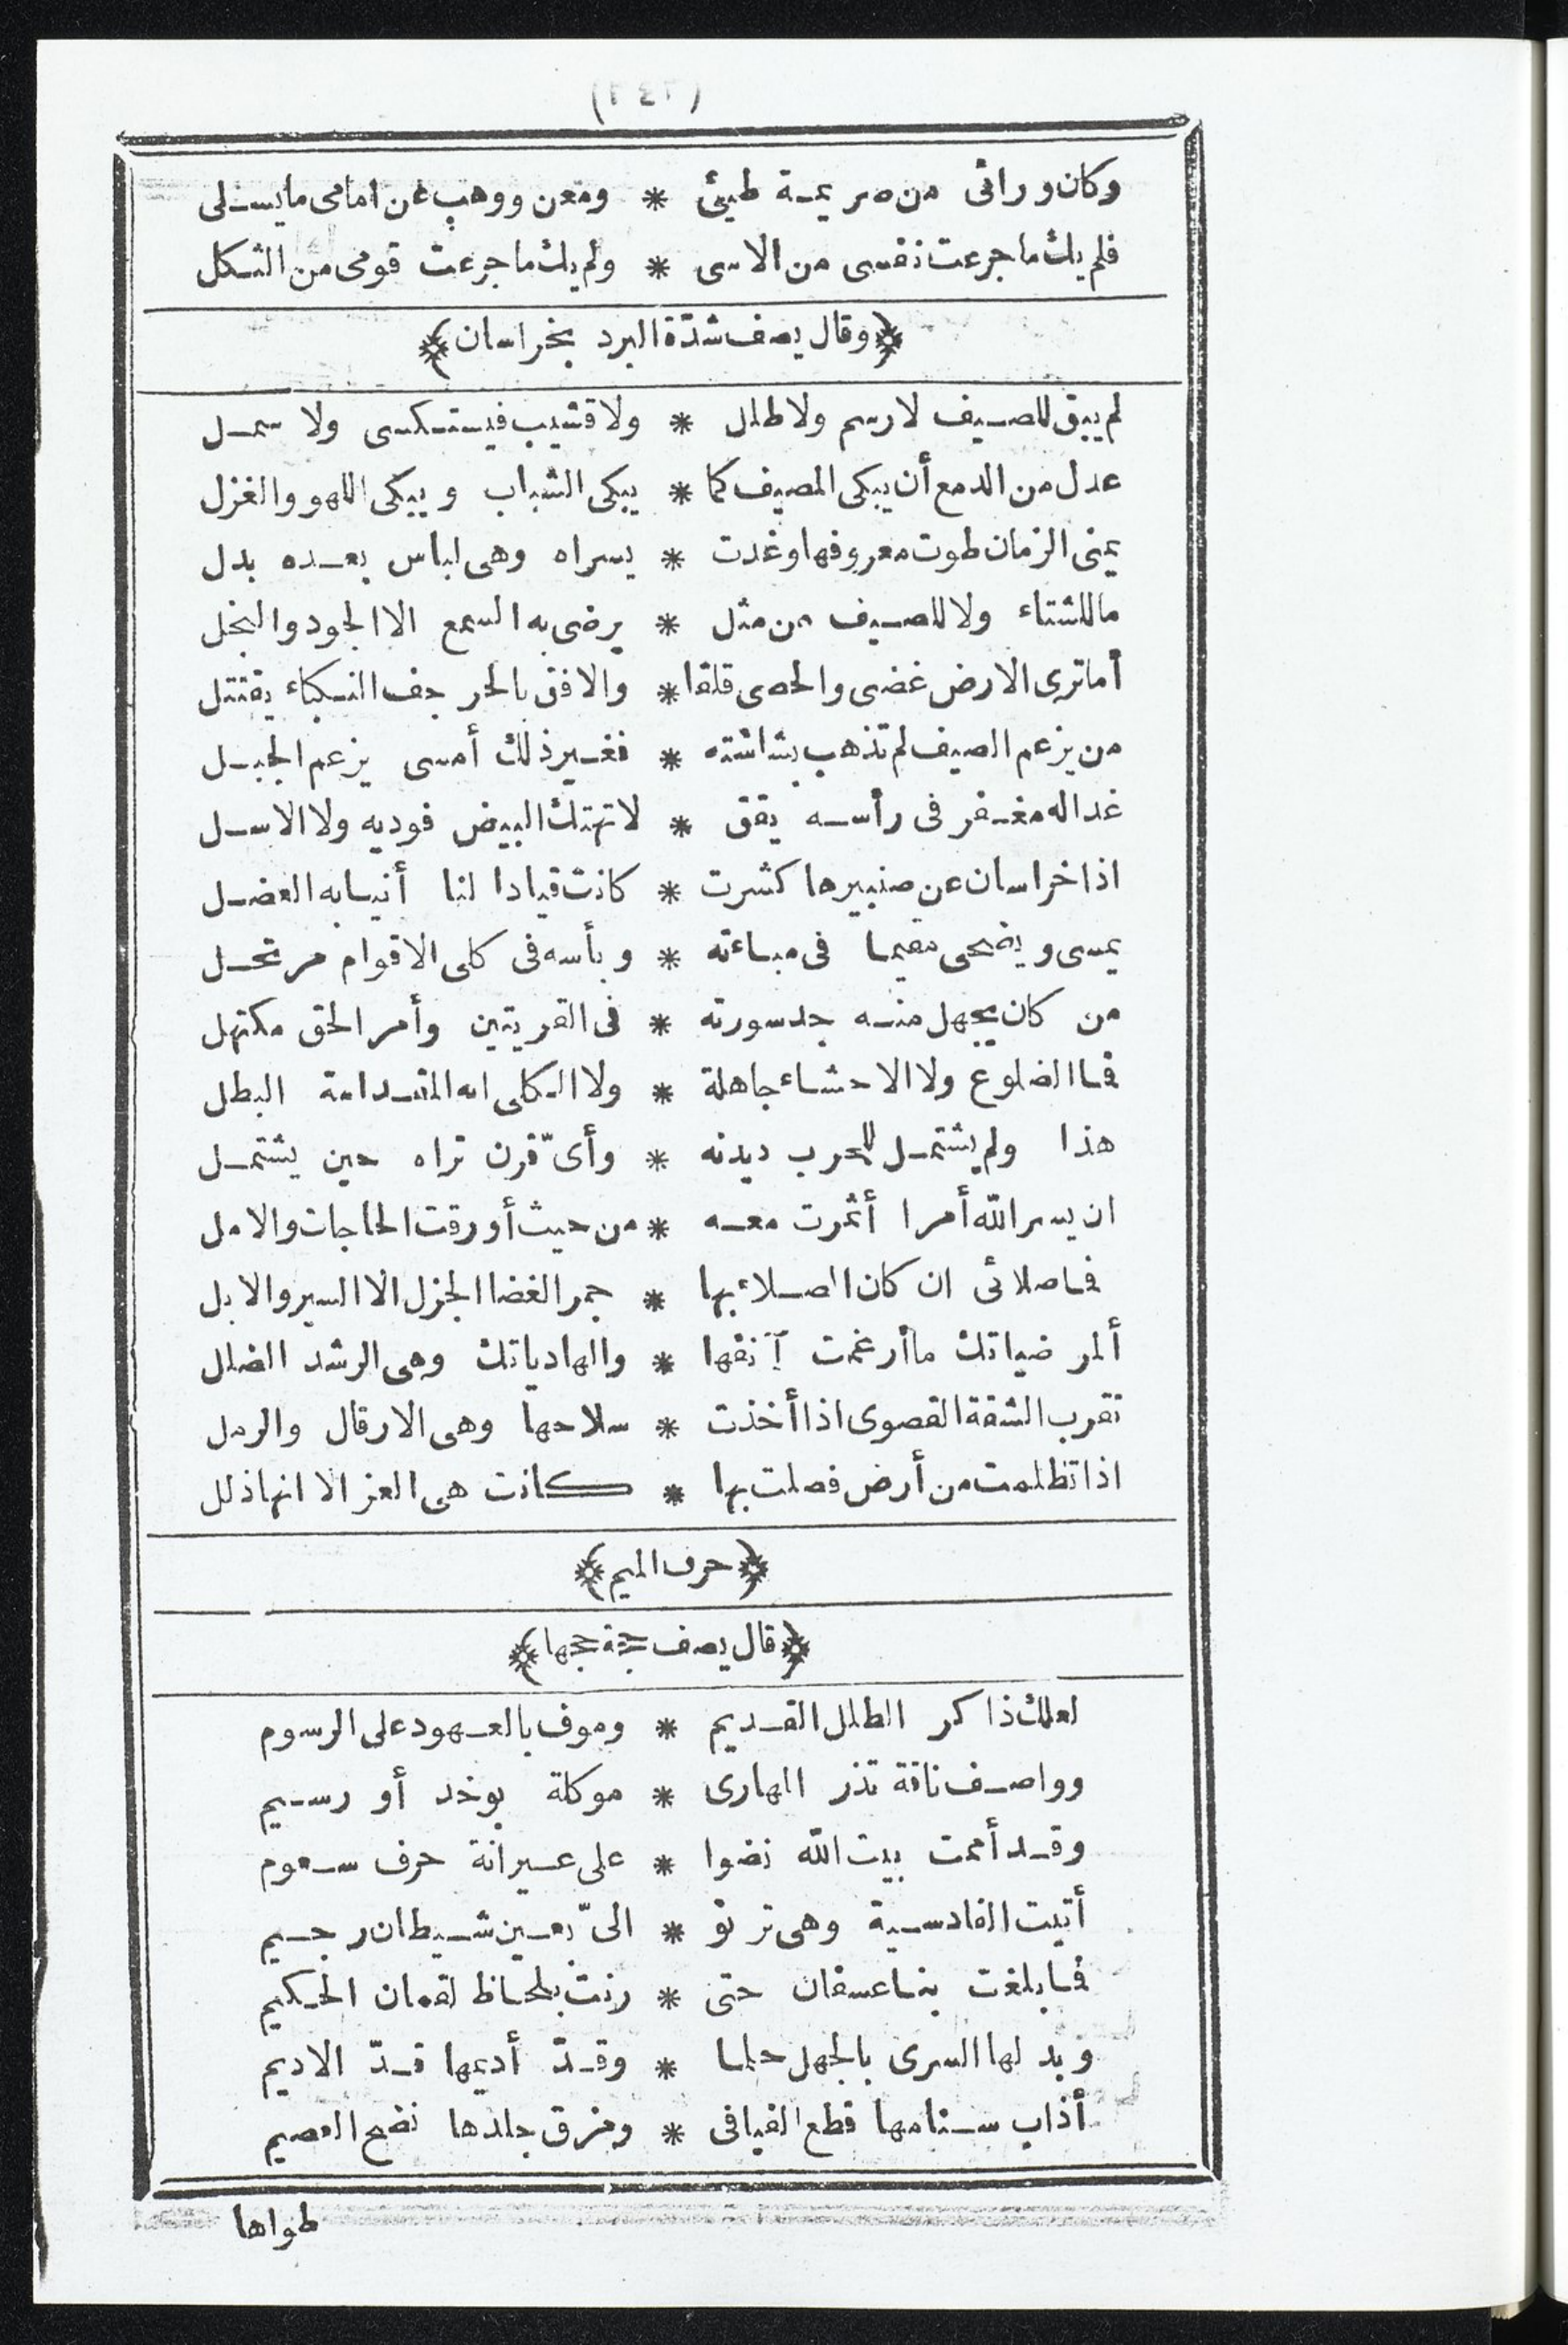 وكان ورائى من صريمة طيئ * ومعن ووهب عن امامى ما يسلى
فلم يك ما جرعت نفسى من الاسى * ولم يك ما جرعت قومى من الثكل
﴿وقال يصف شدّة البرد بخراسان﴾
لم يبق للصيف لا رسم ولا طلل * ولا قشيب فيستكسى ولا سمل
عدل من الدمع أن يبكى المصيف كما * يبكى الشباب ويبكى اللهو والغزل
يمنى الزمان طوت معروفها وغدت * يسراه وهى لباس بعده بدل
ما للشتاء ولا للصيف من مثل * يرضى به السمع الا الجود والبخل
أما ترى الارض غضبى والحصى قلقا * والافق بالحرجف النكباء يقتتل
من يزعم الصيف لم تذهب بشاشته * فغير ذلك أمسى يزعم الجبل
غدا له مغفر فى رأسه يقق * لا تهتك البيض فوديه ولا الاسل
اذا خراسان عن صنبيرها كشرت * كانت قيادا لنا أنيابه العضل
يمسى ويضحى مقيما فى مباءته * وبأسه فى كلى الاقوام مرتحل
من كان يجهل منه جد سورته * فى القريتين وأمر الحق مكتهل
فما الضلوع ولا الاحشاء جاهلة * ولا الكلى انه المقدامة البطل
هذا ولم يشتمل للحرب ديدنه * وأىّ قرن تراه حين يشتمل
ان يسر الله أمرا أثمرت معه * من حيث أورقت الحاجات والامل
فما صلائى ان كان الصلاء بها * جمر الغضا الجزل الا السير والابل
ألمرضياتك ما أرغمت آنفها * والهادياتك وهى الرشد الضلل
تقرب الشقة القصوى اذا أخذت * سلاحها وهى الارقال والرمل
اذا تظلمت من أرض فصلت بها * كانت هى العز الا انها ذلل
﴿حرف الميم﴾
﴿قال يصف حجة حجها﴾
لعلك ذاكر الطلل القديم * وموف بالعهود على الرسوم
وواصف ناقة تذر المهارى * موكلة بوخد أو رسيم
وقد أممت بيت الله نضوا * على عيرانة حرف سعوم
أتيت القادسية وهى ترنو * الىّ بعين شيطان رجيم
فما بلغت بنا عسفان حتى * رنت بلحاظ لقمان الحكيم
وبدلها السرى بالجهل حلما * وقدّ أديمها قدّ الاديم
أذاب سنامها قطع الفيافى * ومزق جلدها نضح العصيم
طواها